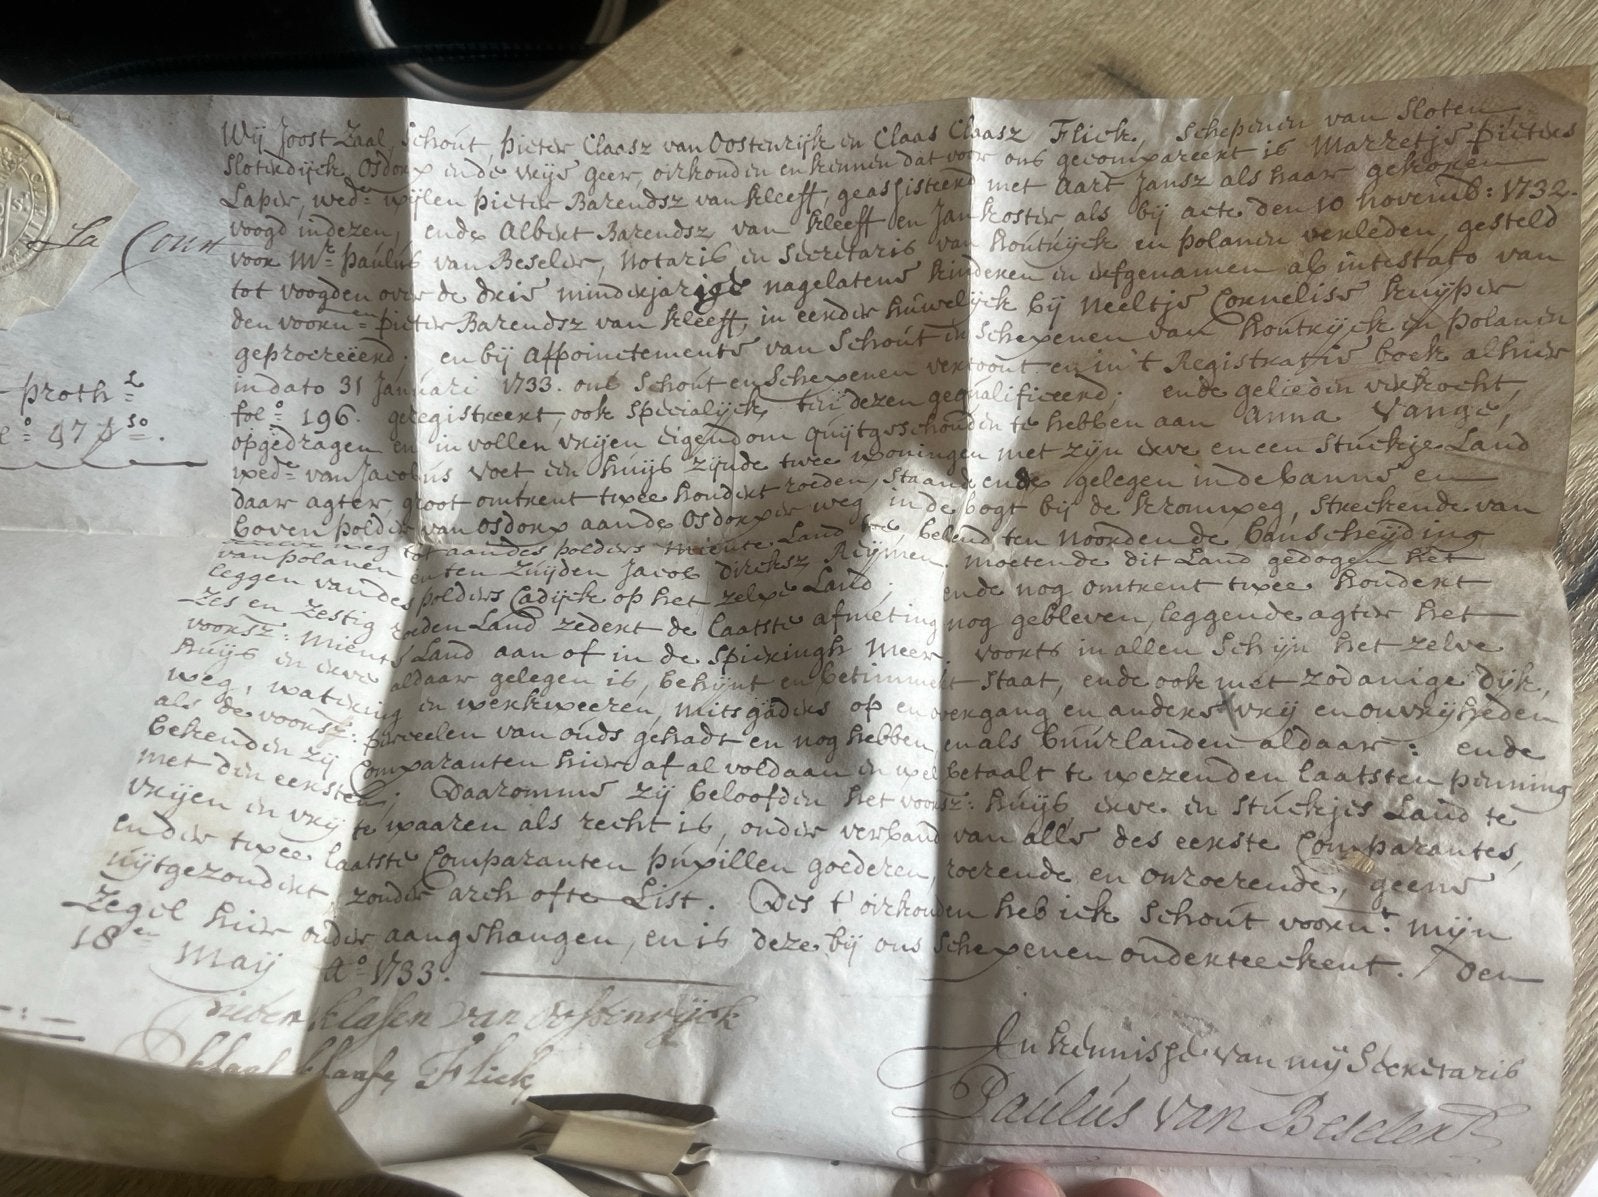 Wij Joost Zaal, Schout, Pieter Claasz van Oostenrijk en Claas Claasz Flick, Schepenen van Sloten
Sloterdijck Osdorp ende vrije geer, oirkonden en kennen dat voor ons gecompareert is Marretje Pieters
Laper, wed:e wijlen Pieter Barendsz van Kleeff, geassisteerd met Aart Jansz als haar gekoren
voogd in dezen, ende Albert Barendsz van Kleeff en Jan Koster als bij acte den 10 novemb: 1732.
voor Mr Paulus van Beseler, Notaris en Secretaris van Houtrijck en Polanen verleden, gesteld
tot voogden over de drie minderjarige nagelatene kinderen en erfgenamen ab intestato van
den voorn:en Pieter Barendsz van Kleeff, in eerder huwelijck bij Neeltje Cornelisse Kuyper
geprocreëerd; en bij Appoinctemente van Schout en Schepenen van Houtrijck en Polanen
in dato 31 Januari 1733. ons Schout en Schepenen vertoont en in 't Registratie boek alhier
fol:o 196. geregistreert, ook specialijck tot dezen gequalificeerd; ende gelieden verkocht,
opgedragen en in vollen vrijen eigendom quijtgeschonden te hebben aan Anna Vange,
wed:e van Jacobus Voet een huijs zijnde twee woningen met zijn erve en een stuckje Land
daar agter, groot omtrent twee hondert roeden, staande ende gelegen in de banne en
boven polder van Osdorp aan de Osdorper weg, in de bogt bij de kromweg, streckende van
weg tot aan des polders miente Land toe, belend ten Noorden de banscheijding
van Polanen en ten Zuijden Jacob Dircksz Reijmen. moetende dit Land gedogen het
leggen van des polders Cadijck op het zelve Land; ende nog omtrent twee hondert
zes en zestig roeden Land zedert de laatste afmeting nog gebleven, leggende agter het
voorsz: miente Land aan of in de Spieringh Meer. voorts in allen schijn het zelve
huijs en erve aldaar gelegen is, behijnt en betimmert staat, ende ook met zodanige dijk,
weg, watering en werkweeren, mitsgaders op en overgang en anders vrij en onvrijheden
als de voorsz: parceelen van ouds gehadt en nog hebben en als buurlanden aldaar: ende
bekenden zij Comparanten hier af al voldaan en wel betaalt te wezen den laatsten penning
met den eersten; Daaromme zij beloofden het voorsz: huijs erve en stuckjes Land te
vrijen en vrij te waaren als recht is, onder verband van alle des eerste Comparantes,
en der twee laatste Comparanten pupillen goederen, roerende en onroerende, geene
uijtgezondert zonder arch ofte List. Des t' oirkonden heb ick Schout voorn:t mijn
Zegel hier onder aangehangen, en is deze bij ons Schepenen onderteeckent. Den
18en Maij Ao 1733.
Pieter klasen van oostenrijck
klaas klaase Flick
In kennisse van mij Secretaris
Paulus van Beseler
La Cour
proth:l
474